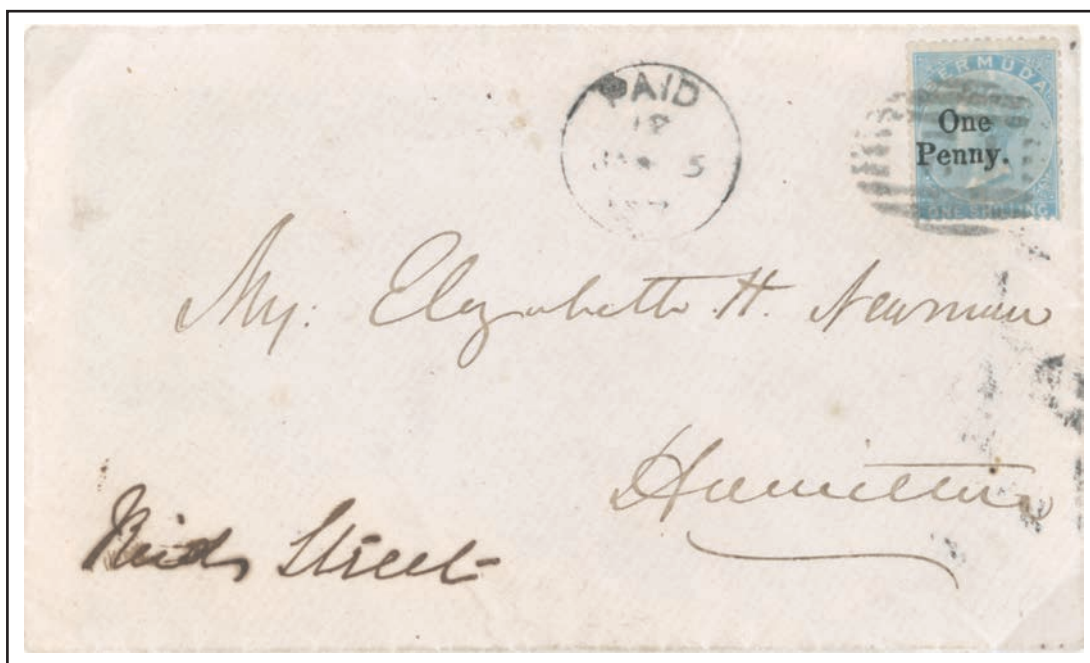 PAID
BERMUDA
One
Penny.
ONE SHILLING
Elizabeth H. Newman
Hamilton
Street